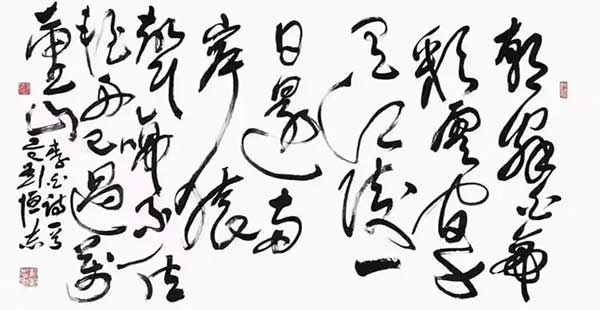 朝辭白帝
彩雲間千
里江陵一
日還兩
岸猿
聲啼不住
輕舟已過萬
重山
李白詩
劉恒志